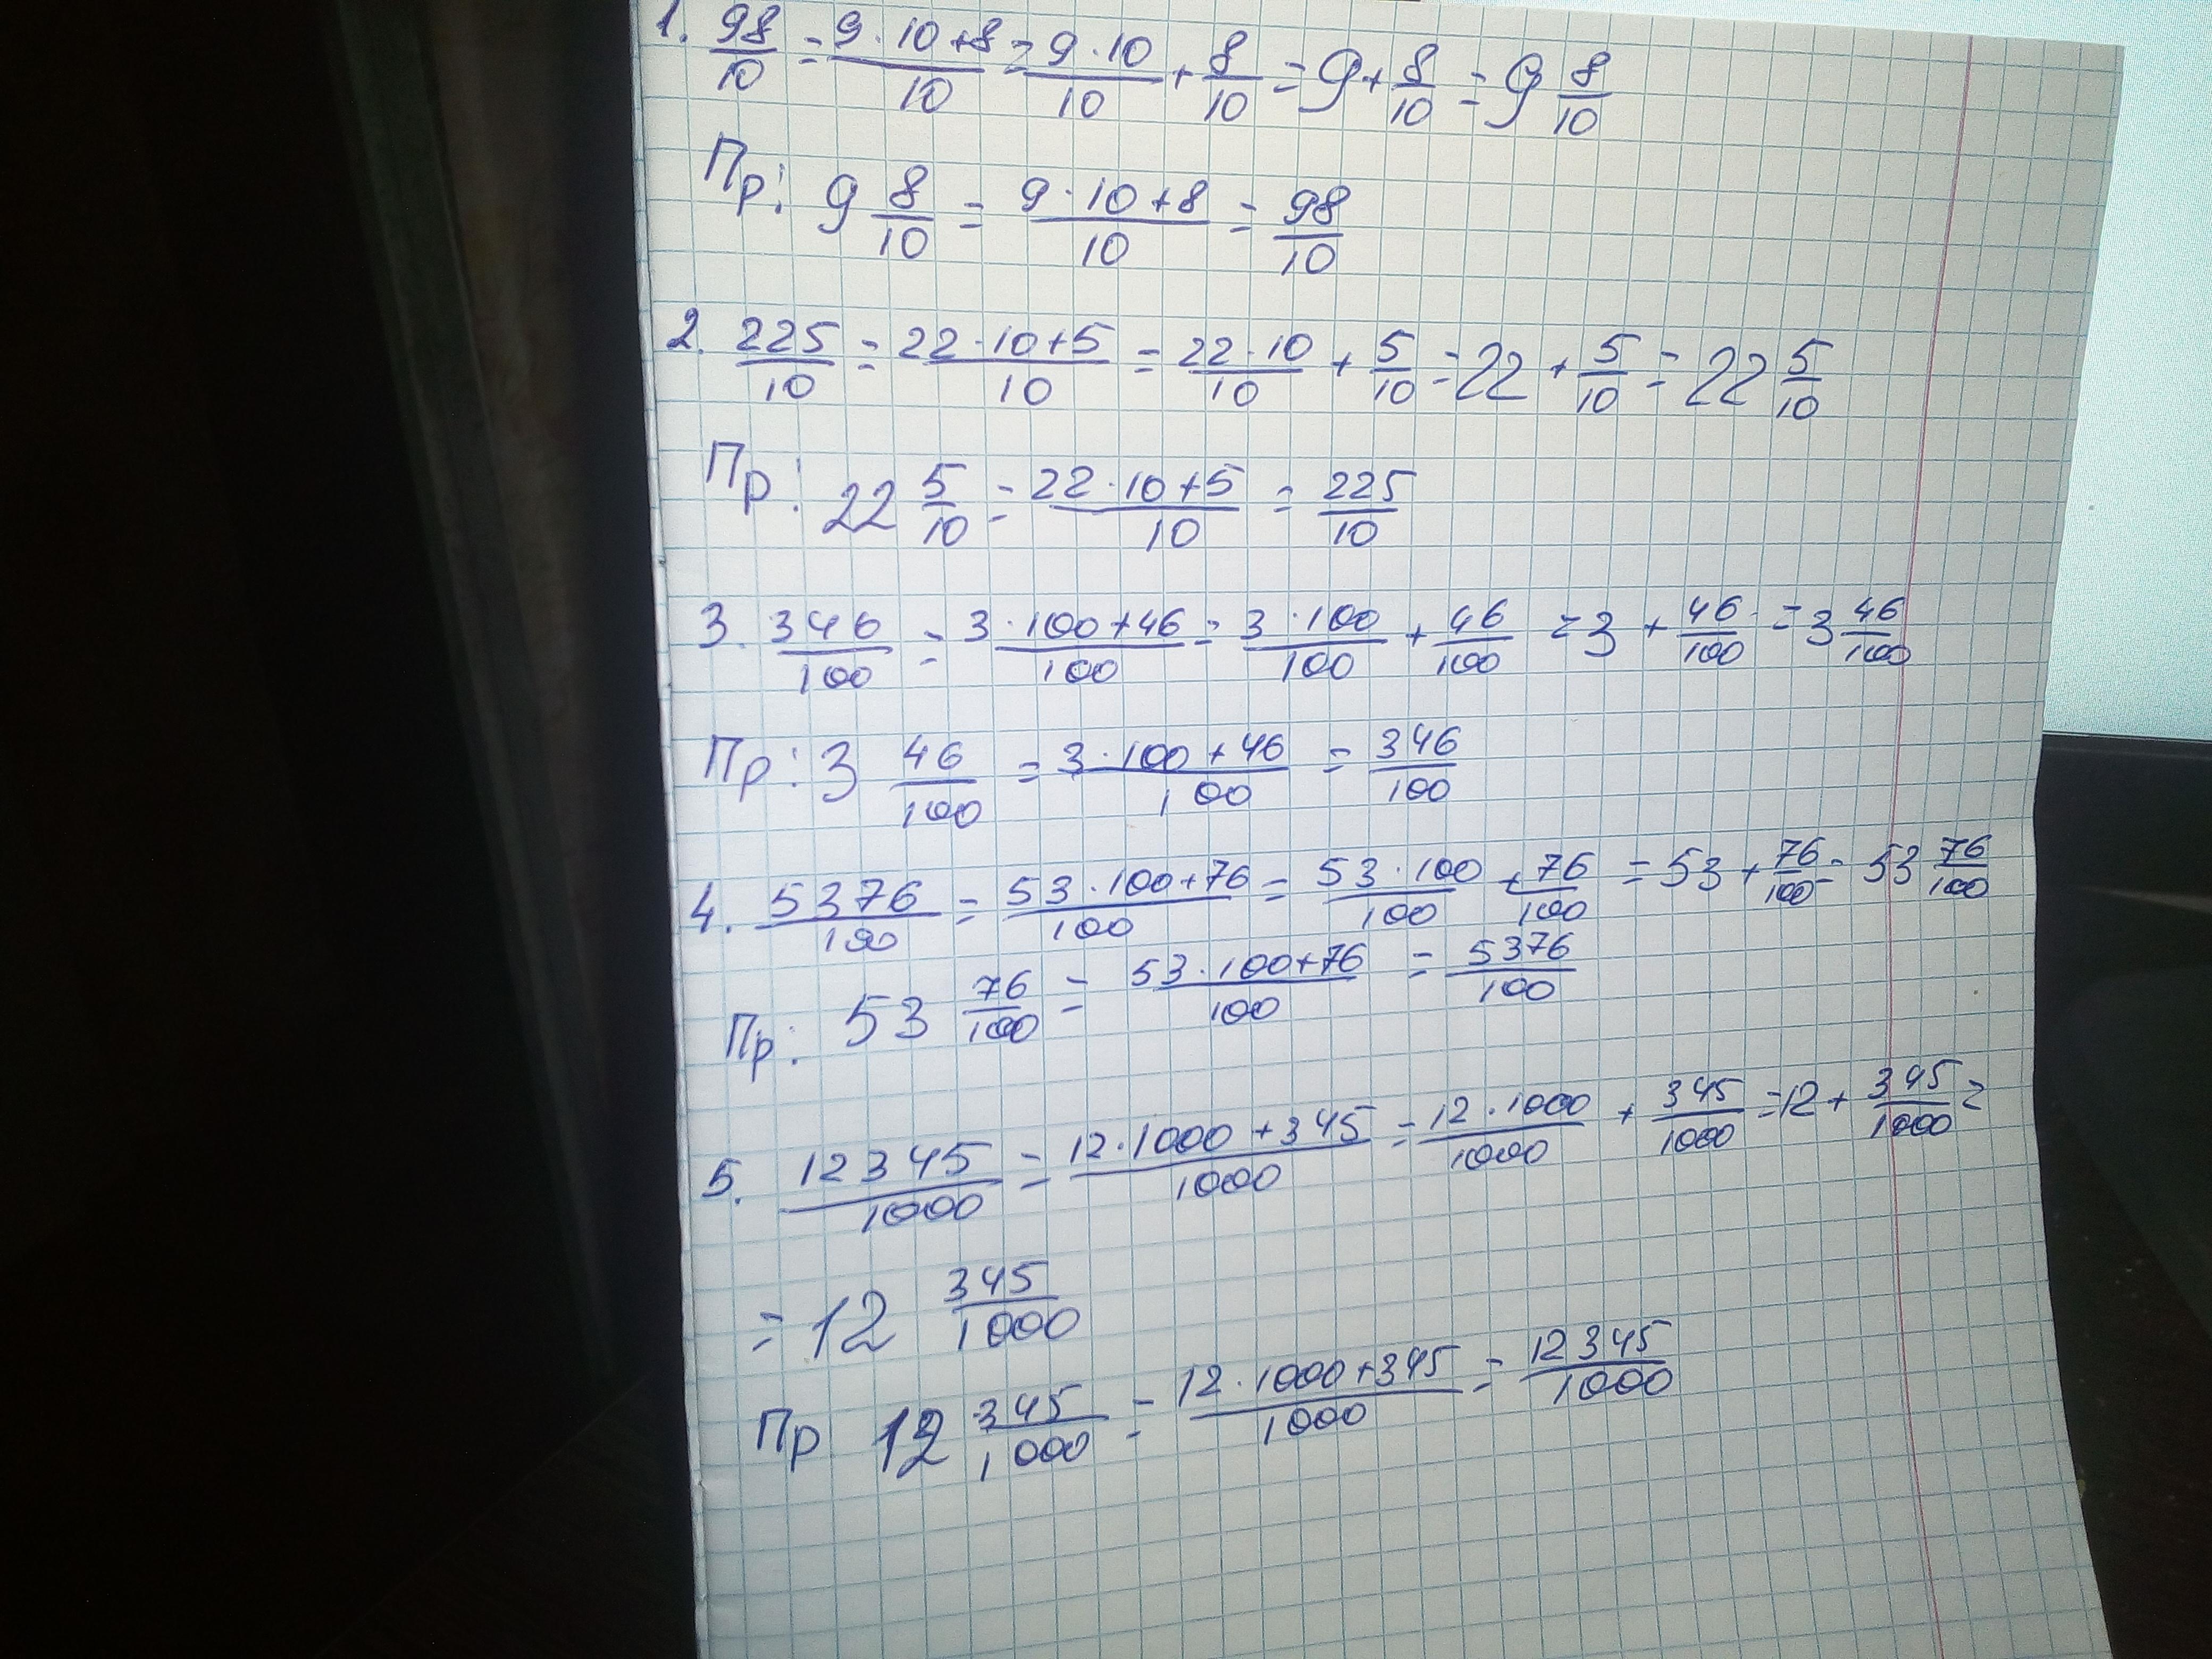 1. 98/10 = 9·10+8/10 = 9·10/10 + 8/10 = 9+8/10 = 9 8/10
Пр: 9 8/10 = 9·10+8/10 = 98/10
2. 225/10 = 22·10+5/10 = 22·10/10 + 5/10 = 22 + 5/10 = 22 5/10
Пр: 22 5/10 = 22·10+5/10 = 225/10
3. 346/100 = 3·100+46/100 = 3·100/100 + 46/100 = 3 + 46/100 = 3 46/100
Пр: 3 46/100 = 3·100+46/100 = 346/100
4. 5376/100 = 53·100+76/100 = 53·100/100 + 76/100 = 53 + 76/100 = 53 76/100
Пр: 53 76/100 = 53·100+76/100 = 5376/100
5. 12345/1000 = 12·1000+345/1000 = 12·1000/1000 + 345/1000 = 12 + 345/1000 =
= 12 345/1000
Пр 12 345/1000 = 12·1000+345/1000 = 12345/1000